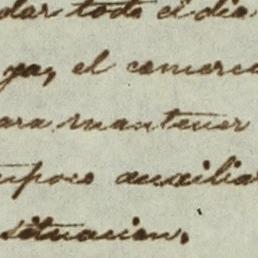 dar todo el dia
ya, el comerc
para mantener
tampoco auxilia
situacion.